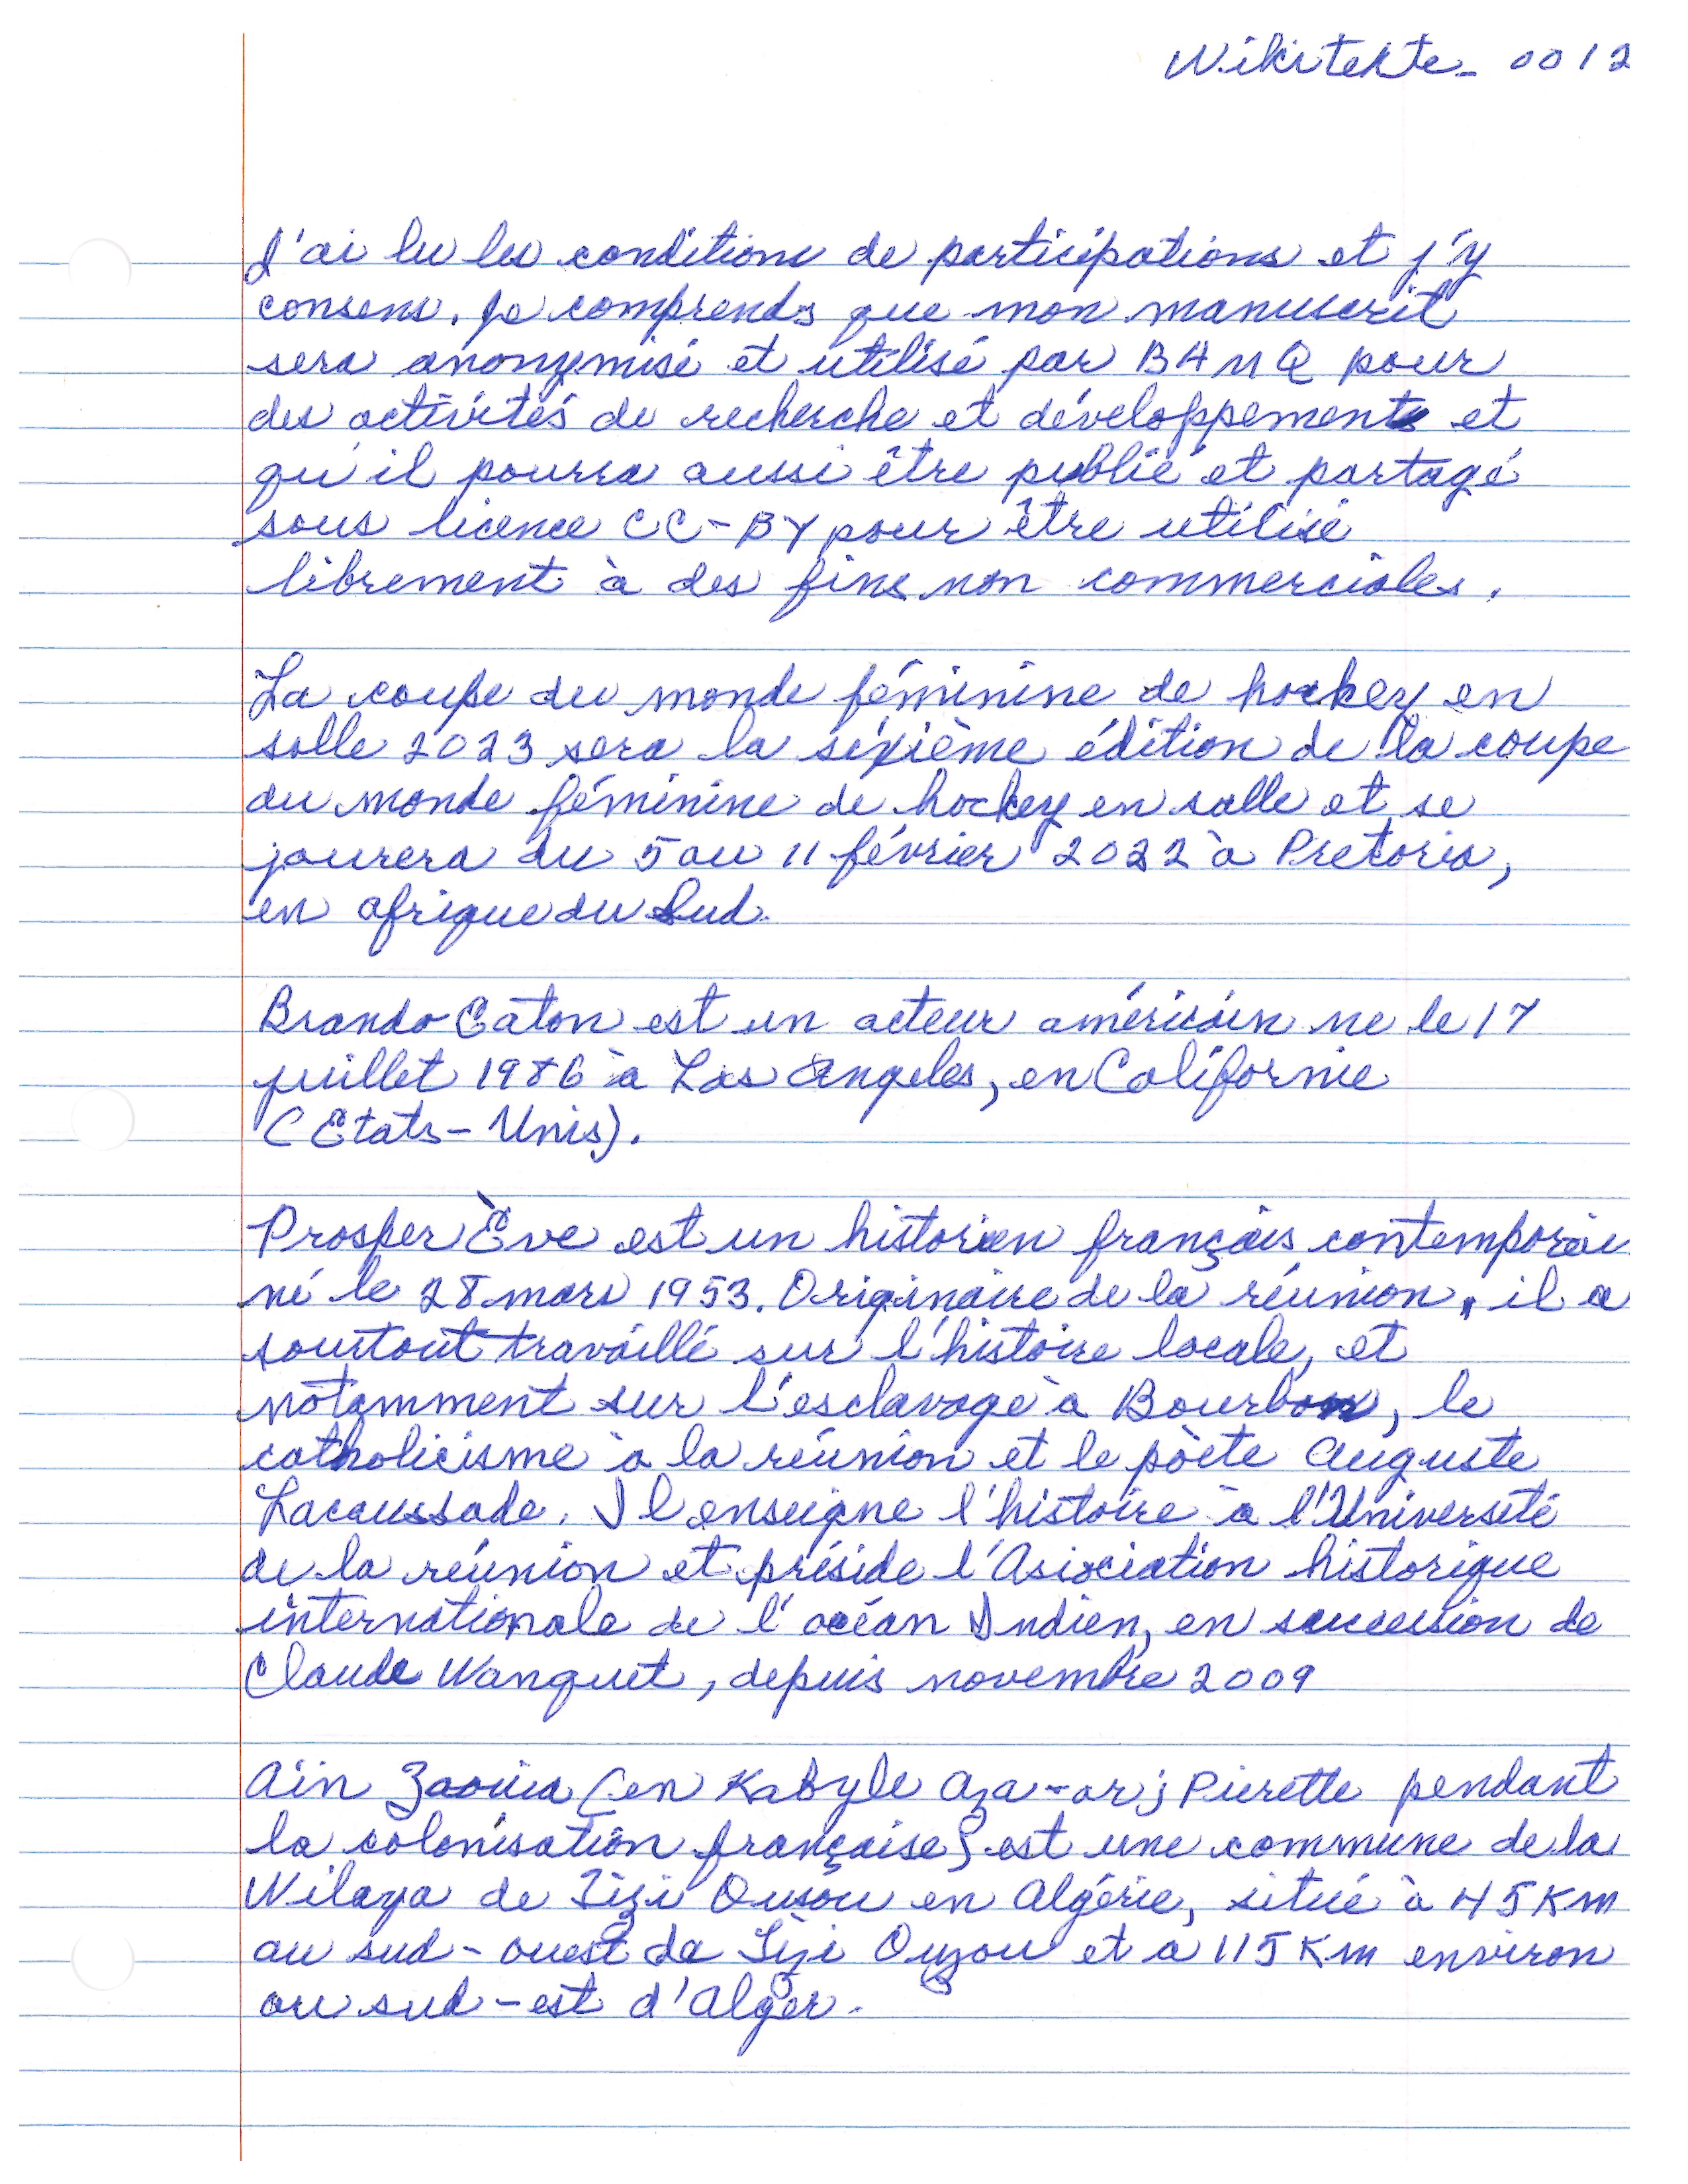 Wikitexte_0012
J'ai lu les conditions de participations et j'y
consens. Je comprends que mon manuscrit
sera anonymisé et utilisé par BAnQ pour
des activités de recherche et développements et
qu'il pourra aussi être publié et partagé
sous licence CC-BY pour être utilisé
librement à des fins non commerciales.
La coupe du monde féminine de hockey en
salle 2023 sera la sixième édition de la coupe
du monde féminine de hockey en salle et se
jourera du 5 au 11 février 2022 à Pretoria,
en afrique du Sud.
Brando Eaton est un acteur américain ne le 17
juillet 1986 à Los Angeles, en Californie
(Etats-Unis).
Prosper Ève est un historien français contemporai
né le 28 mars 1953. Originaire de la réunion, il a
sourtout travaillé sur l'histoire locale, et
notamment sur l'esclavage à Bourbon, le
catholicisme à la réunion et le pòete Auguste
Lacaussade. Il enseigne l'histoire à l'Université
de la réunion et préside l'Asiociation historique
internationale de l'océan Indien, en succession de
Claude Wanquet, depuis novembre 2009
Aïn Zaouia (en Kabyle Aza-ar; Pierette pendant
la colonisation française) est une commune de la
Wilaya de Tizi Ousou en Algérie, situé à 45 Km
au sud-ouest de Tizi Ouzou et a 115 Km environ
au sud-est d'Alger.